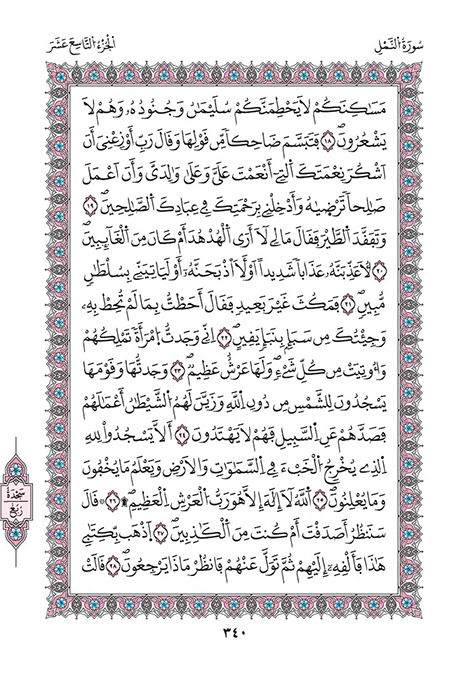 سُورَةُ النَّمْلِ
الْجُزْءُ التَّاسِعَ عَشَرَ
مَسَاكِنَكُمْ لَا يَحْطِمَنَّكُمْ سُلَيْمَانُ وَجُنُودُهُ، وَهُمْ لَا
يَشْعُرُونَ ١٨ فَتَبَسَّمَ ضَاحِكاً مِّن قَوْلِهَا وَقَالَ رَبِّ أَوْزِعْنِي أَنْ
أَشْكُرَ نِعْمَتَكَ الَّتِي أَنْعَمْتَ عَلَيَّ وَعَلَى وَالِدَيَّ وَأَنْ أَعْمَلَ
صَالِحاً تَرْضَيهُ وَأَدْخِلْنِي بِرَحْمَتِكَ فِي عِبَادِكَ الصَّالِحِينَ ١٩
وَتَفَقَّدَ الطَّيْرَ فَقَالَ مَا لِي لَا أَرَى الْهُدْهُدَ أَمْ كَانَ مِنَ الْغَائِبِينَ
٢٠ لَأُعَذِّبَنَّهُ، عَذَاباً شَدِيداً أَوْ لَأَاْذْبَحَنَّهُ، أَوْ لَيَاتِيَنِّي بِسُلْطَانٍ
مُّبِينٍ ٢١ فَمَكُثَ غَيْرَ بَعِيدٍ فَقَالَ أَحَطتُ بِمَا لَمْ تُحِطْ بِهِ،
وَجِئْتُكَ مِن سَبَإٍ بِنَبَإٍ يَقِينٍ ٢٢ إِنِّي وَجَدتُّ امْرَأَةً تَمْلِكُهُمْ
وَأُوتِيَتْ مِن كُلِّ شَيْءٍ وَلَهَا عَرْشٌ عَظِيمٌ ٢٣ وَجَدتُّهَا وَقَوْمَهَا
يَسْجُدُونَ لِلشَّمْسِ مِن دُونِ اللَّهِ وَزَيَّنَ لَهُمُ الشَّيْطَانُ أَعْمَالَهُمْ
فَصَدَّهُمْ عَنِ السَّبِيلِ فَهُمْ لَا يَهْتَدُونَ ٢٤ أَلَّا يَسْجُدُوا لِلهِ
الَّذِي يُخْرِجُ الْخَبْءَ فِي السَّمَاوَاتِ وَالْأَرْضِ وَيَعْلَمُ مَا يُخْفُونَ
وَمَا يُعْلِنُونَ ٢٥ اللَّهُ لَا إِلَهَ إِلَّا هُوَ رَبُّ الْعَرْشِ الْعَظِيمِ ٢٦ ۞ قَالَ
سَنَنظُرُ أَصَدَقْتَ أَمْ كُنتَ مِنَ الْكَاذِبِينَ ٢٧ اذْهَب بِّكِتَابِي
هَذَا فَأَلْقِهِ إِلَيْهِمْ ثُمَّ تَوَلَّ عَنْهُمْ فَانظُرْ مَاذَا يَرْجِعُونَ ٢٨ قَالَتْ
سَجْدَة
رُبُع
٣٤٠